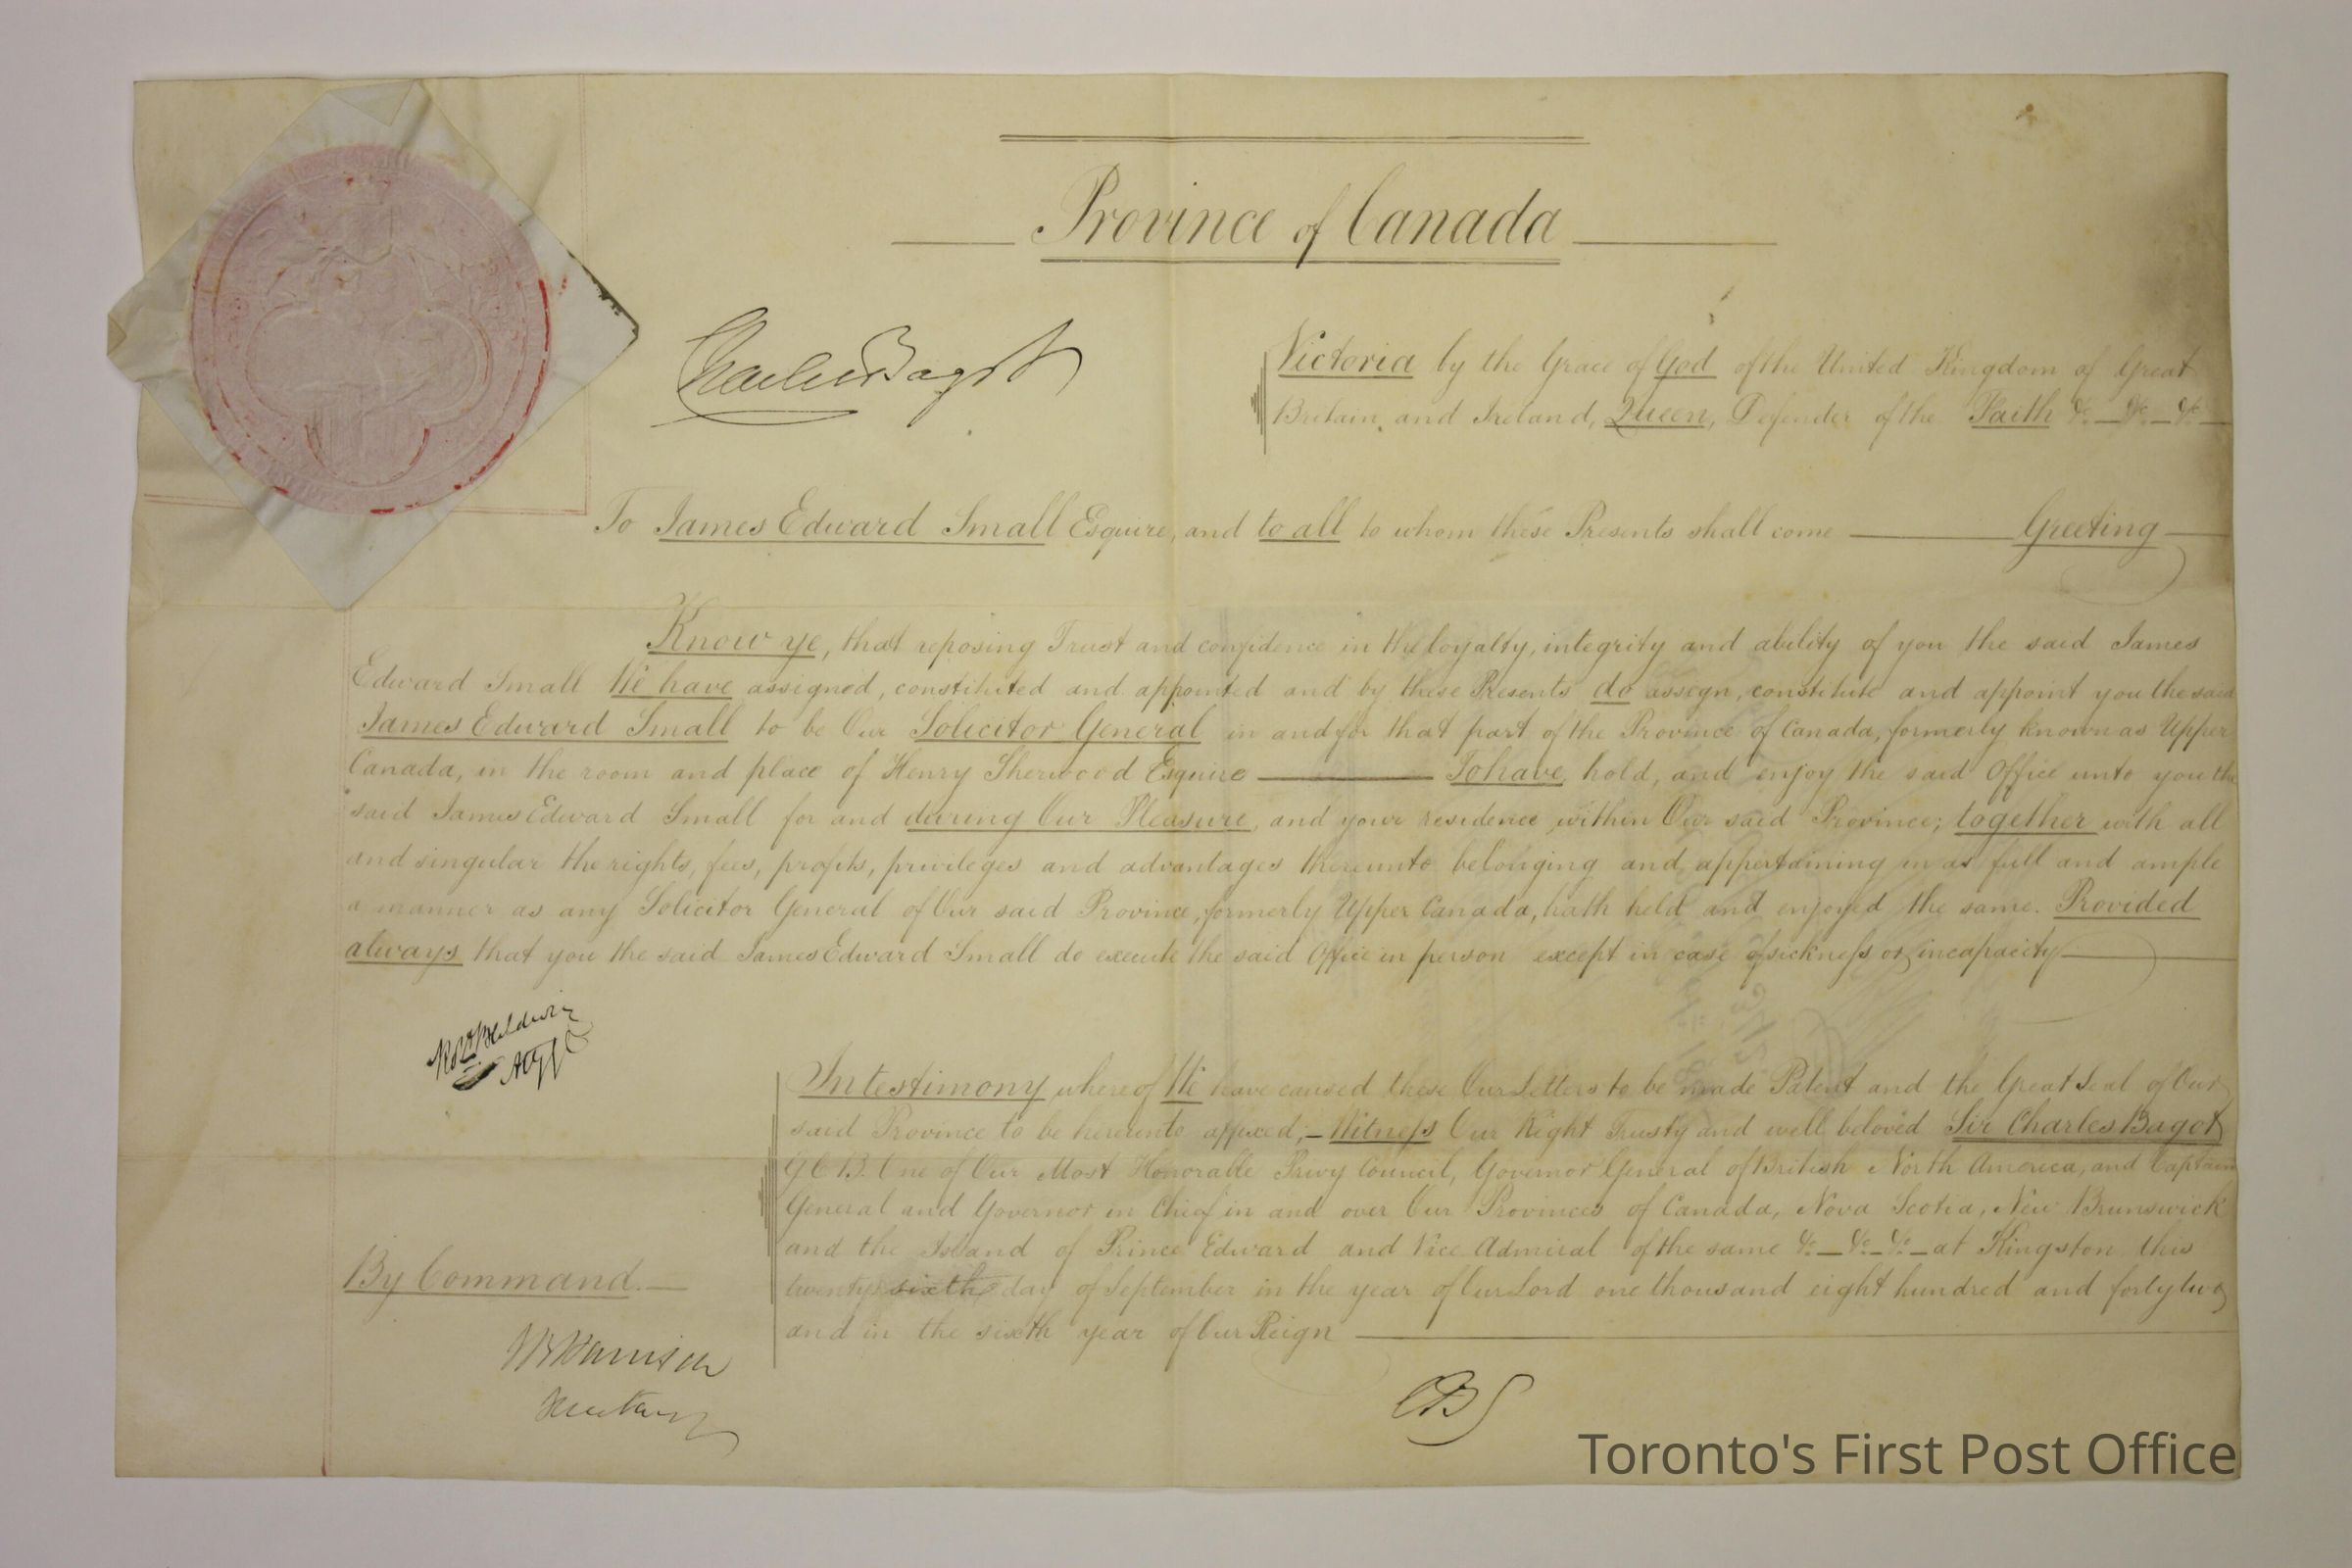 Province of Canada
Charles Bagot
Victoria by the Grace of God of the United Kingdom of Great
Britain, and Ireland, Queen, Defender of the Faith &c. — &c. — &c. —
To James Edward Small Esquire, and to all to whom these Presents shall come — Greeting —
Know ye, that reposing Trust and confidence in the loyalty, integrity and ability of you the said James
Edward Small We have assigned, constituted and appointed and by these Presents do assign, constitute and appoint you the said
James Edward Small to be Our Solicitor General in and for that part of the Province of Canada, formerly known as Upper
Canada, in the room and place of Henry Sherwood Esquire — To have, hold, and enjoy the said Office unto you the
said James Edward Small for and during Our Pleasure, and your residence within Our said Province; together with all
and singular the rights, fees, profits, privileges and advantages thereunto belonging and appertaining in as full and ample
a manner as any Solicitor General of Our said Province, formerly Upper Canada, hath held and enjoyed the same. Provided
always that you the said James Edward Small do execute the said Office in person except in case of sickness or incapacity —
Robt Baldwin
Atty G
In testimony whereof We have caused these Our Letters to be made Patent and the Great Seal of Our
said Province to be hereunto affixed; — Witness Our Right Trusty and well beloved Sir Charles Bagot
G.C.B. One of Our Most Honorable Privy Council, Governor General of British North America, and Captain
General and Governor in Chief in and over Our Provinces of Canada, Nova Scotia, New Brunswick
and the Island of Prince Edward and Vice Admiral of the same &c. — &c. — &c. — at Kingston this
twenty sixth day of September in the year of Our Lord one thousand eight hundred and forty two
and in the sixth year of Our Reign —
By Command. —
S B Harrison
Secretary
CB
Toronto's First Post Office